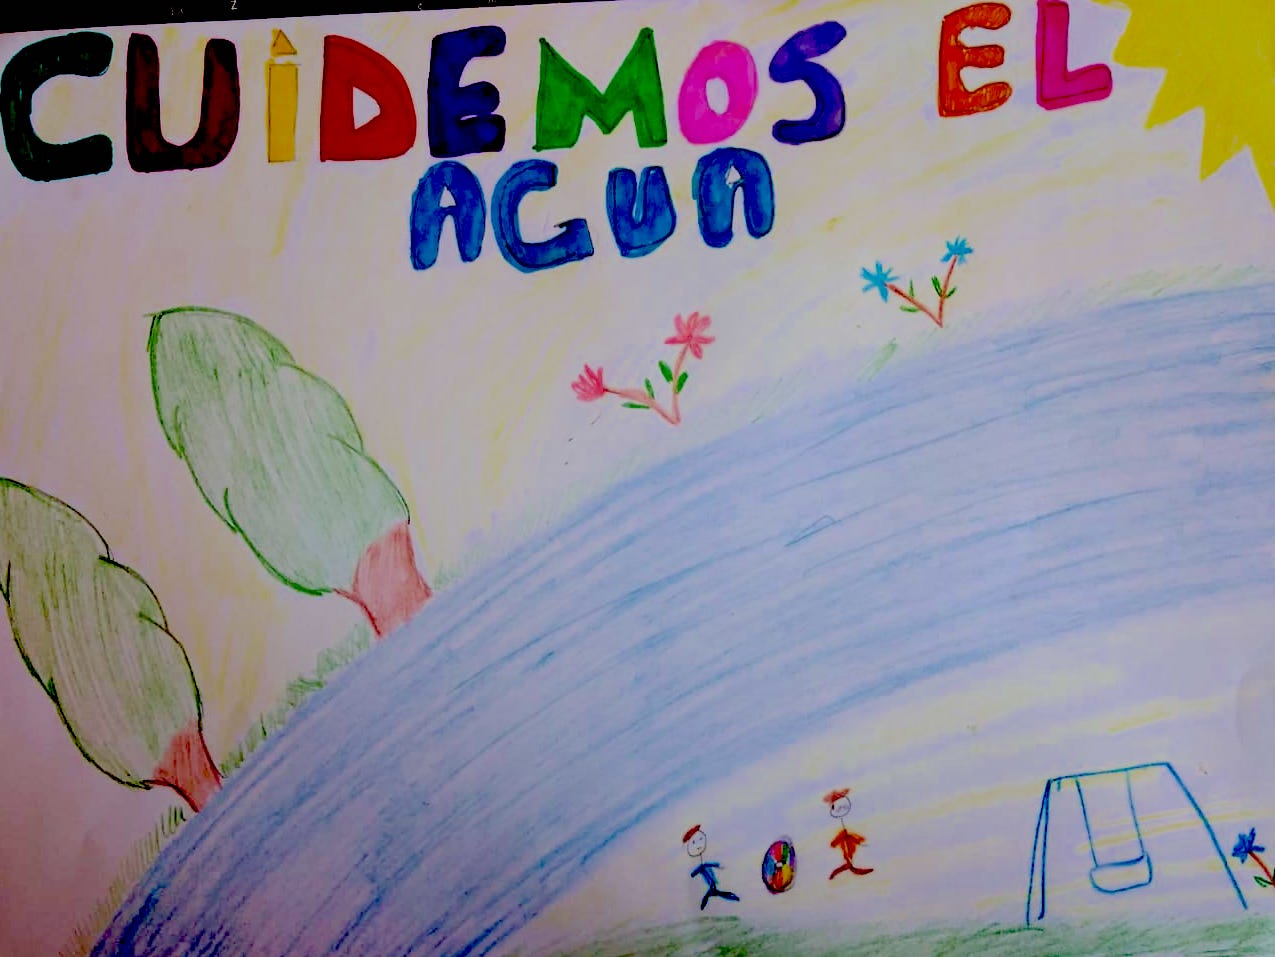 CUiDEMOS EL
AGUA